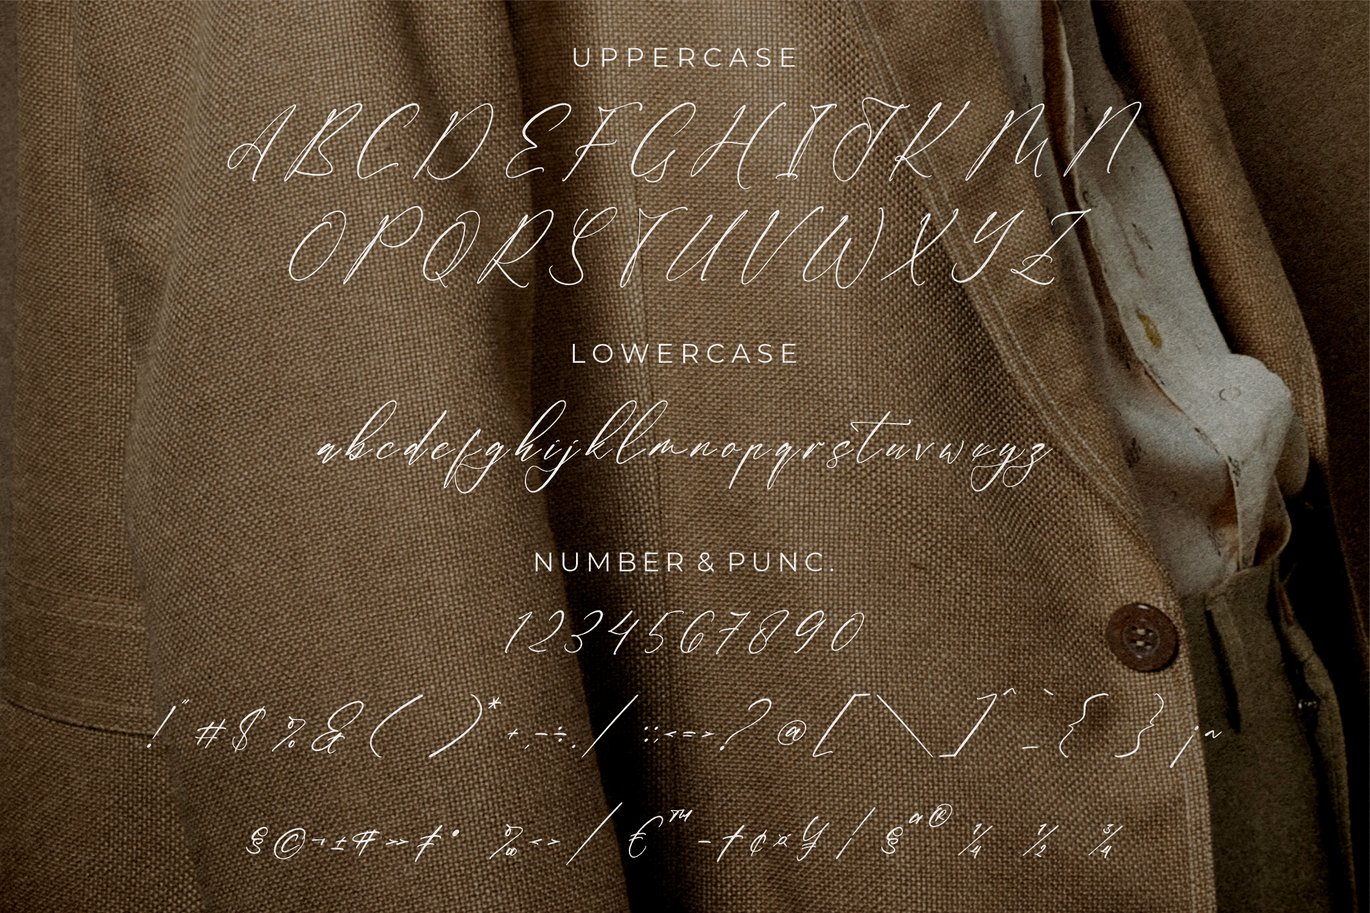 UPPERCASE
ABCDEFGHIJKMN
OPQRSTUVWXYZ
LOWERCASE
abcdefghijklmnopqrstuvwxyz
NUMBER & PUNC.
1234567890
!"#$%&()*+,-÷./:;<=>?@[\]^_`{}¡~
§©¬±¶»ƒ° ‰<>/€™–†¢¤¥|§ª® ¼ ½ ¾